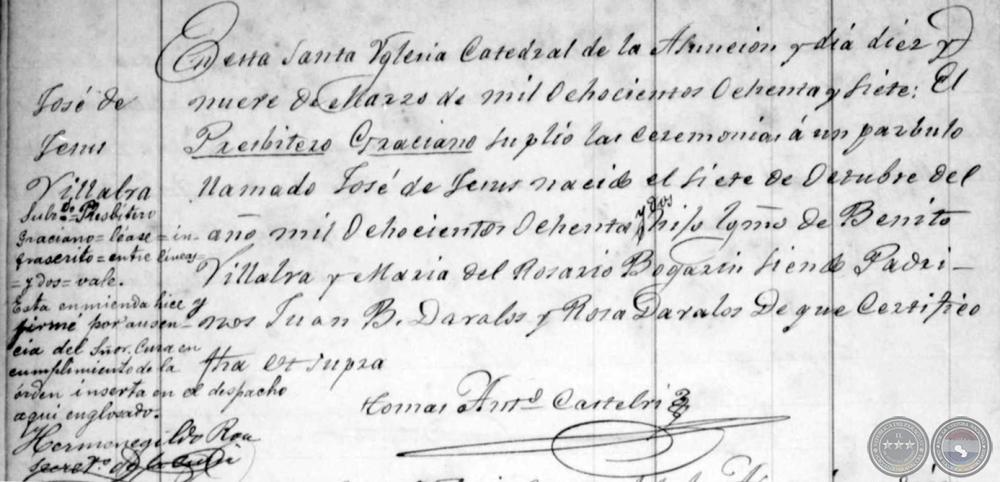 José de
Jesus
Villalva
Subrdo = Presbitero
Graciano = léase = in-
frascrito = entre lineas
= y dos = vale.
Esta enmienda hice y
firmé por ausen-
cia del Sñor. Cura en
cumplimiento de la
órden inserta en el despacho
aqui englosado.
Hermenegildo Roa
Secreto.
En esta Santa Yglesia Catedral de la Asuncion y dia diez y
nueve de Marzo de mil Ochocientos Ochenta y siete: El
Presbitero Graciano suplió las ceremonias á un parbulo
llamado José de Jesus nacido el siete de Octubre del
año mil Ochocientos Ochenta y dos hijo lgmo de Benito
Villalva y Maria del Rosario Bogarin siendo Padri-
nos Juan B. Davalos y Rosa Davalos De que Certifico
fha Ut supra
Tomas Anto